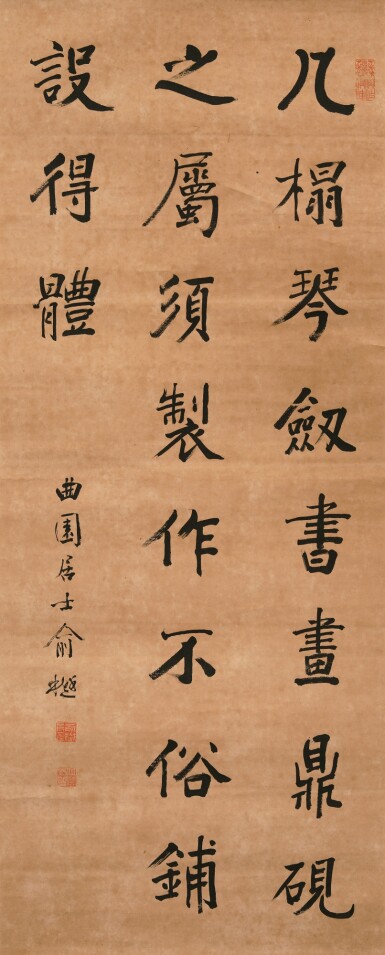 几榻琴劔書畫鼎硯
之屬須製作不俗鋪
設得體
曲園居士俞樾